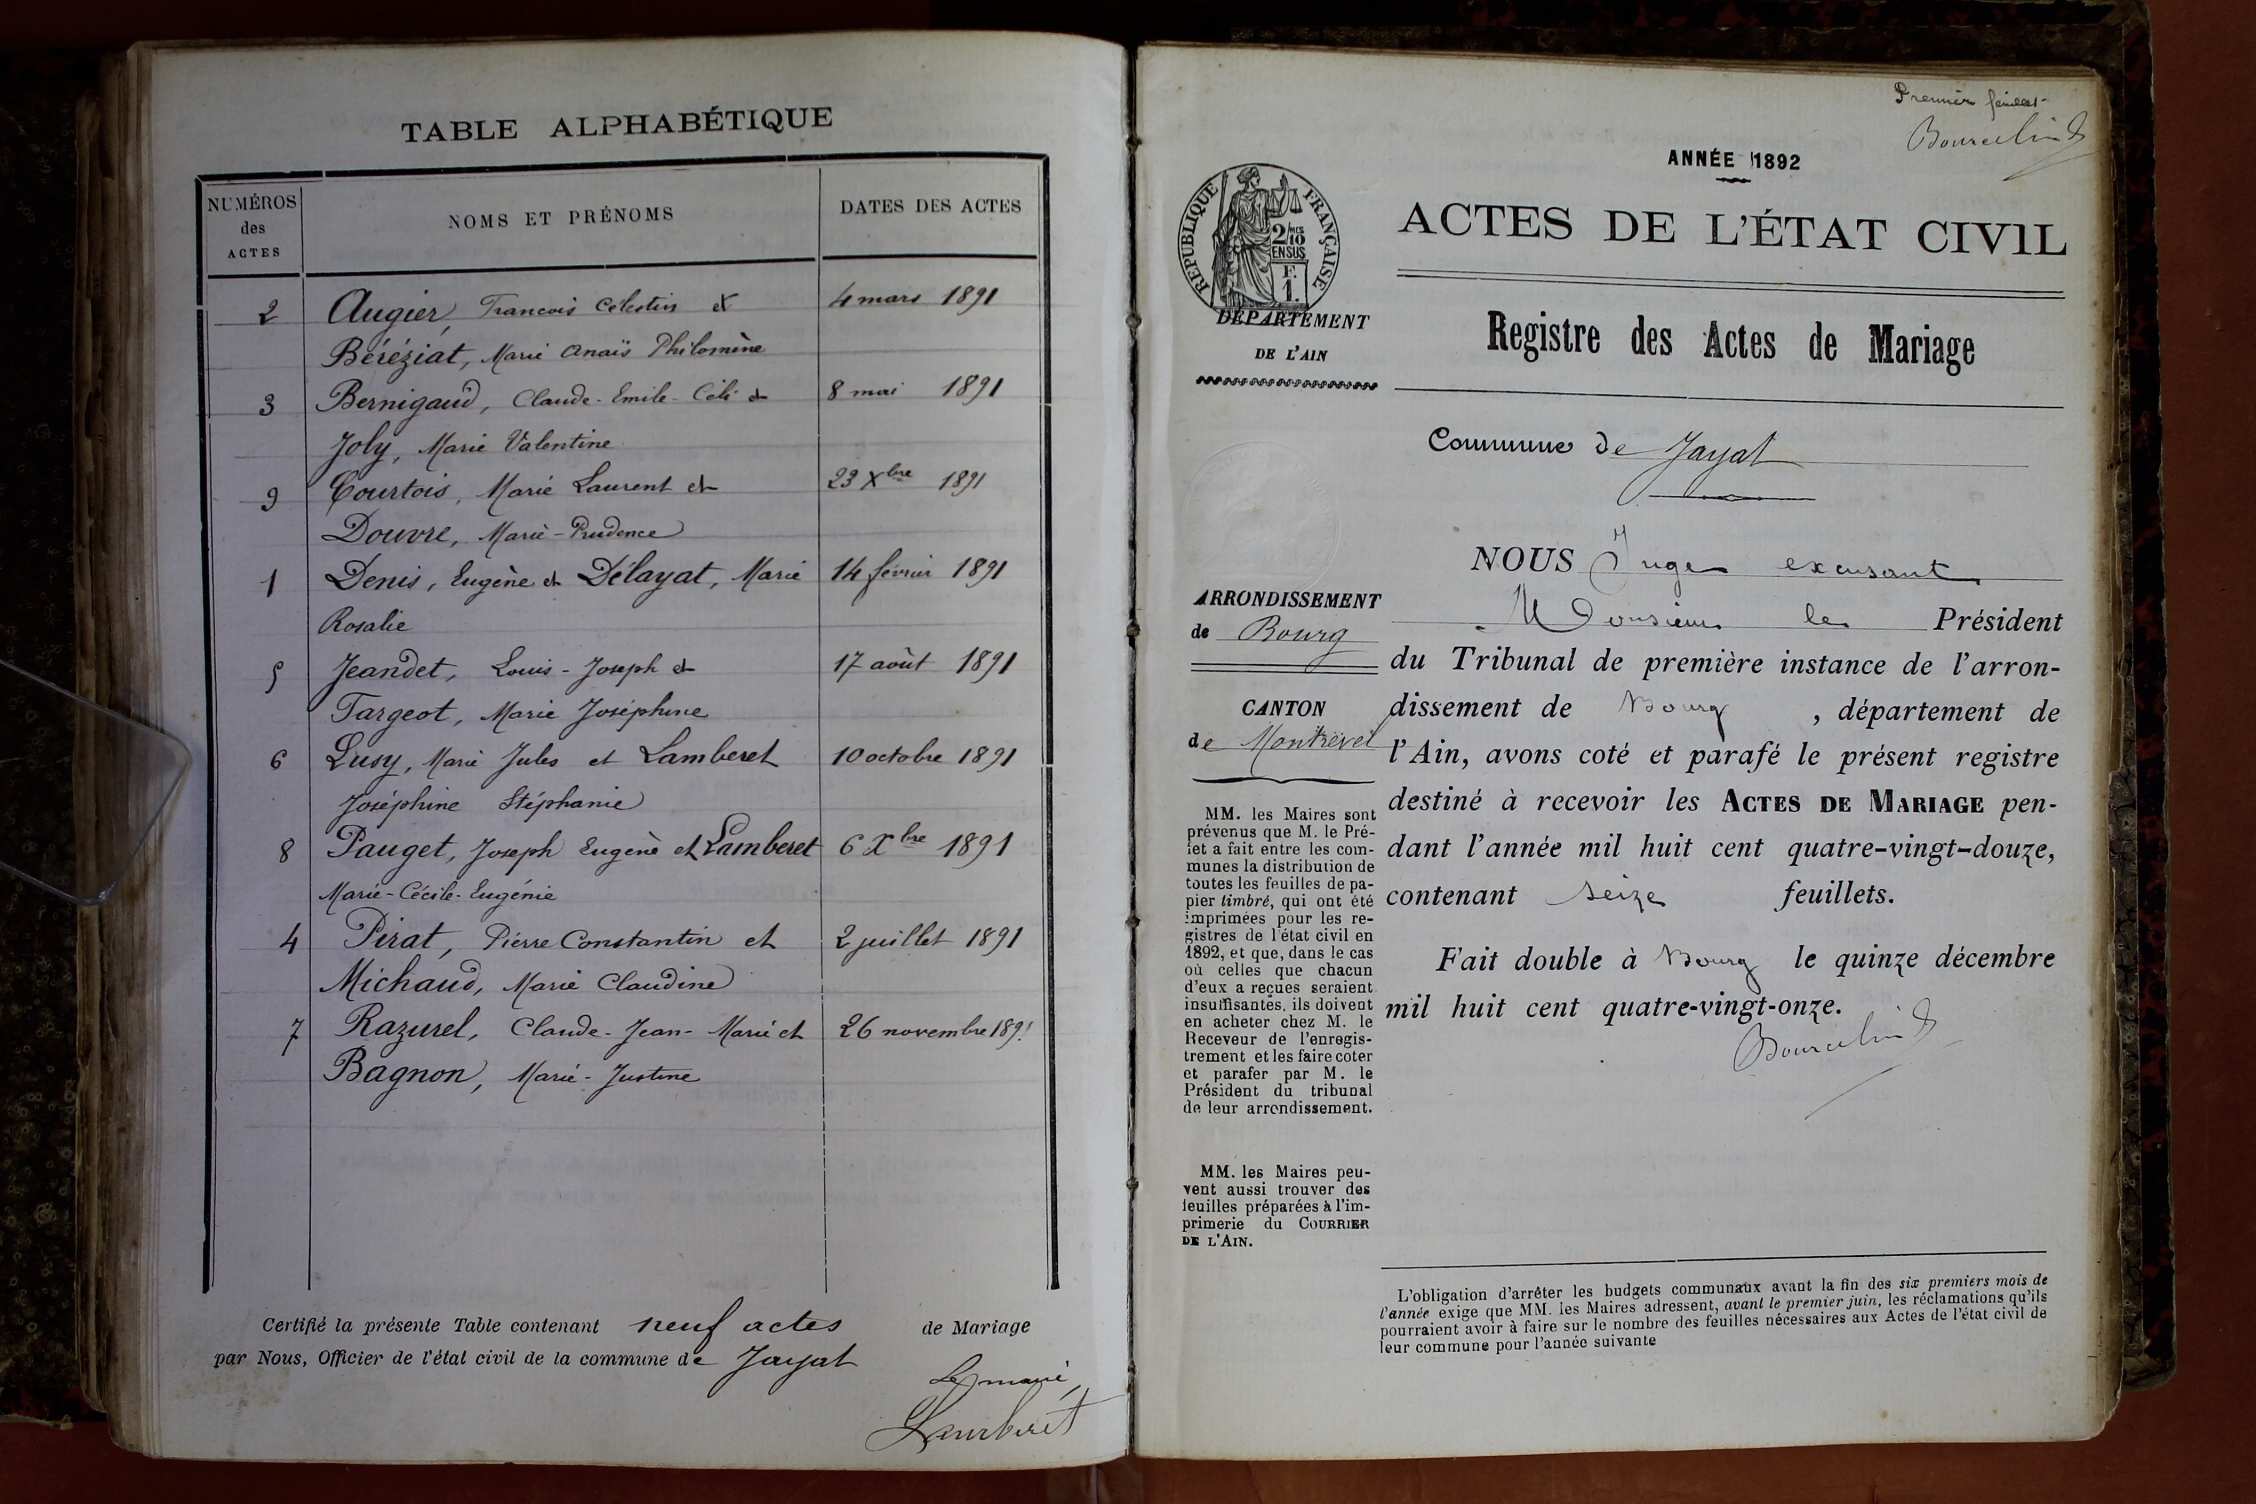 TABLE ALPHABÉTIQUE
NUMÉROS
des
ACTES
NOMS ET PRÉNOMS
DATES DES ACTES
2 Augier, Francois Celestin et 4 mars 1891
Béréziat, Marie Anaïs Philomène
3 Bernigaud, Claude-Emile- et 8 mai 1891
Joly, Marie Valentine
9 Courtois, Marie Laurent et 23 Xbre 1891
Douvre, Marie-Prudence
1 Denis, Eugène et Délayat, Marie 14 février 1891
Rosalie
5 Jeandet, Louis-Joseph et 17 août 1891
Targeot, Marie Joséphine
6 Lusy, Marie Jules et Lamberet 10 octobre 1891
Joséphine Stéphanie
8 Pauget, Joseph Eugène et Lamberet 6 Xbre 1891
Marie-Cécile-Eugénie
4 Pirat, Pierre Constantin et 2 juillet 1891
Michaud, Marie Claudine
7 Razurel, Claude-Jean-Marie et 26 novembre 1891
Bagnon, Marie-Justine
Certifié la présente Table contenant neuf actes de Mariage
par Nous, Officier de l'état civil de la commune de Jayat
Le maire,
Lamberet
Premier feuillet
Bourcelin
ANNÉE 1892
RÉPUBLIQUE FRANÇAISE
2/10 MES
EN SUS
F.
1.
DÉPARTEMENT
DE L'AIN
ACTES DE L'ÉTAT CIVIL
Registre des Actes de Mariage
Commune de Jayat
ARRONDISSEMENT
de Bourg
CANTON
de Montrevel
MM. les Maires sont
prévenus que M. le Pré-
fet a fait entre les com-
munes la distribution de
toutes les feuilles de pa-
pier timbré, qui ont été
imprimées pour les re-
gistres de l'état civil en
1892, et que, dans le cas
où celles que chacun
d'eux a reçues seraient
insuffisantes, ils doivent
en acheter chez M. le
Receveur de l'enregis-
trement et les faire coter
et parafer par M. le
Président du tribunal
de leur arrondissement.
MM. les Maires peu-
vent aussi trouver des
feuilles préparées à l'im-
primerie du COURRIER
DE L'AIN.
NOUS Juge excusant
Monsieur le Président
du Tribunal de première instance de l'arron-
dissement de Bourg, département de
l'Ain, avons coté et parafé le présent registre
destiné à recevoir les ACTES DE MARIAGE pen-
dant l'année mil huit cent quatre-vingt-douze,
contenant seize feuillets.
Fait double à Bourg le quinze décembre
mil huit cent quatre-vingt-onze.
Bourcelin
L'obligation d'arrêter les budgets communaux avant la fin des six premiers mois de
l'année exige que MM. les Maires adressent, avant le premier juin, les réclamations qu'ils
pourraient avoir à faire sur le nombre des feuilles nécessaires aux Actes de l'état civil de
leur commune pour l'année suivante